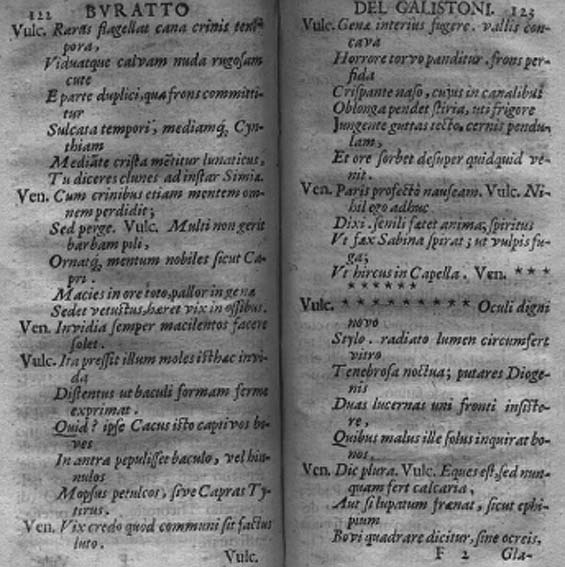 122 BVRATTO
Vulc. Raras flagellat cana crinis tem-
pora,
Viduatque calvam nuda rugosam
cute
E parte duplici, qua frons committi-
tur
Sulcata tempori, mediamq́, Cyn-
thiam
Mediāte crista mētitur lunaticus,
Tu diceres clunes ad instar Simiæ.
Ven. Cum crinibus etiam mentem om-
nem perdidit;
Sed perge. Vulc. Multi non gerit
barbam pili,
Ornatq́, mentum nobiles sicut Ca-
pri.
Macies in ore toto, pallor in genæ
Sedet vetustus, hæret vix in ossibus.
Ven. Invidia semper macilentos facere
solet.
Vulc. Ita pressit illum moles isthæc invi-
da
Distentus ut baculi formam ferme
exprimat.
Quid? ipse Cacus isto captivos bo-
ves
In antra pepulisset baculo, vel hin-
nulos
Mopsus petulcos, sive Capras Ty-
tirus.
Ven. Vix credo quòd communi sit factus
luto.
Vulc.
DEL CALISTONI. 123
Vulc. Genæ interius fugere. vallis con-
cava
Horrore torvo panditur. frons per-
fida
Crispante naso, cujus in canalibus
Oblonga pendet stiria, uti frigore
Jungente guttas tecto. cernis pendu-
lam,
Et ore sorbet desuper quidquid ve-
nit.
Ven. Paris profectò nauseam. Vulc. Ni-
hil ego adhuc
Dixi. senili fætet anima; spiritus
Vt fæx Sabina spirat; ut vulpis fu-
ga;
Vt hircus in Capella. Ven. * * *
* * * * * *
Vulc. * * * * * * * * * Oculi digni
novo
Stylo. radiato lumen circumfert
vitro
Tenebrosa noctua; putares Dioge-
nis
Duas lucernas uni fronti insiste-
re,
Quibus malus ille solus inquirat bo-
nos.
Ven. Dic plura. Vulc. Eques est, sed nun-
quam fert calcaria,
Aut si lupatum frænat, sicut ephi-
pium
Bovi quadrare dicitor, sine ocreis.
F 2 Gla-